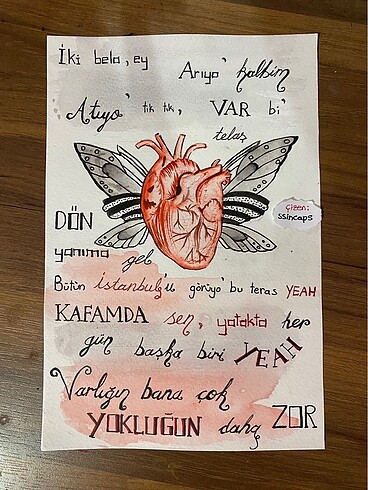 İki bela, ey
Arıyo' kalbim
Atıyo' tık tık, VAR bi'
telaş
çizen:
ssincaps
DÖN
yanıma gel
Bütün istanbul'u görüyo' bu teras YEAH
KAFAMDA sen, yatakta her
gün başka biri YEAH
Varlığın bana çok
YOKLUĞUN daha ZOR